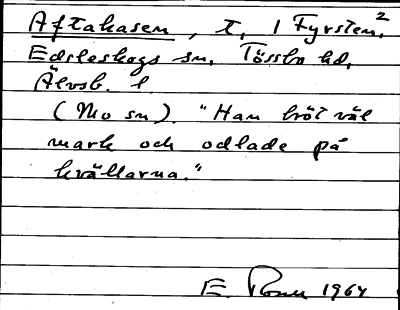 Aftakasen, t. 1 Fyrsten,²
Edsleskogs sn. Tössbo hd.
Älvsb. l
(Mo sn). "Han bröt väl
mark och odlade på
kvällarna."
E. 1964